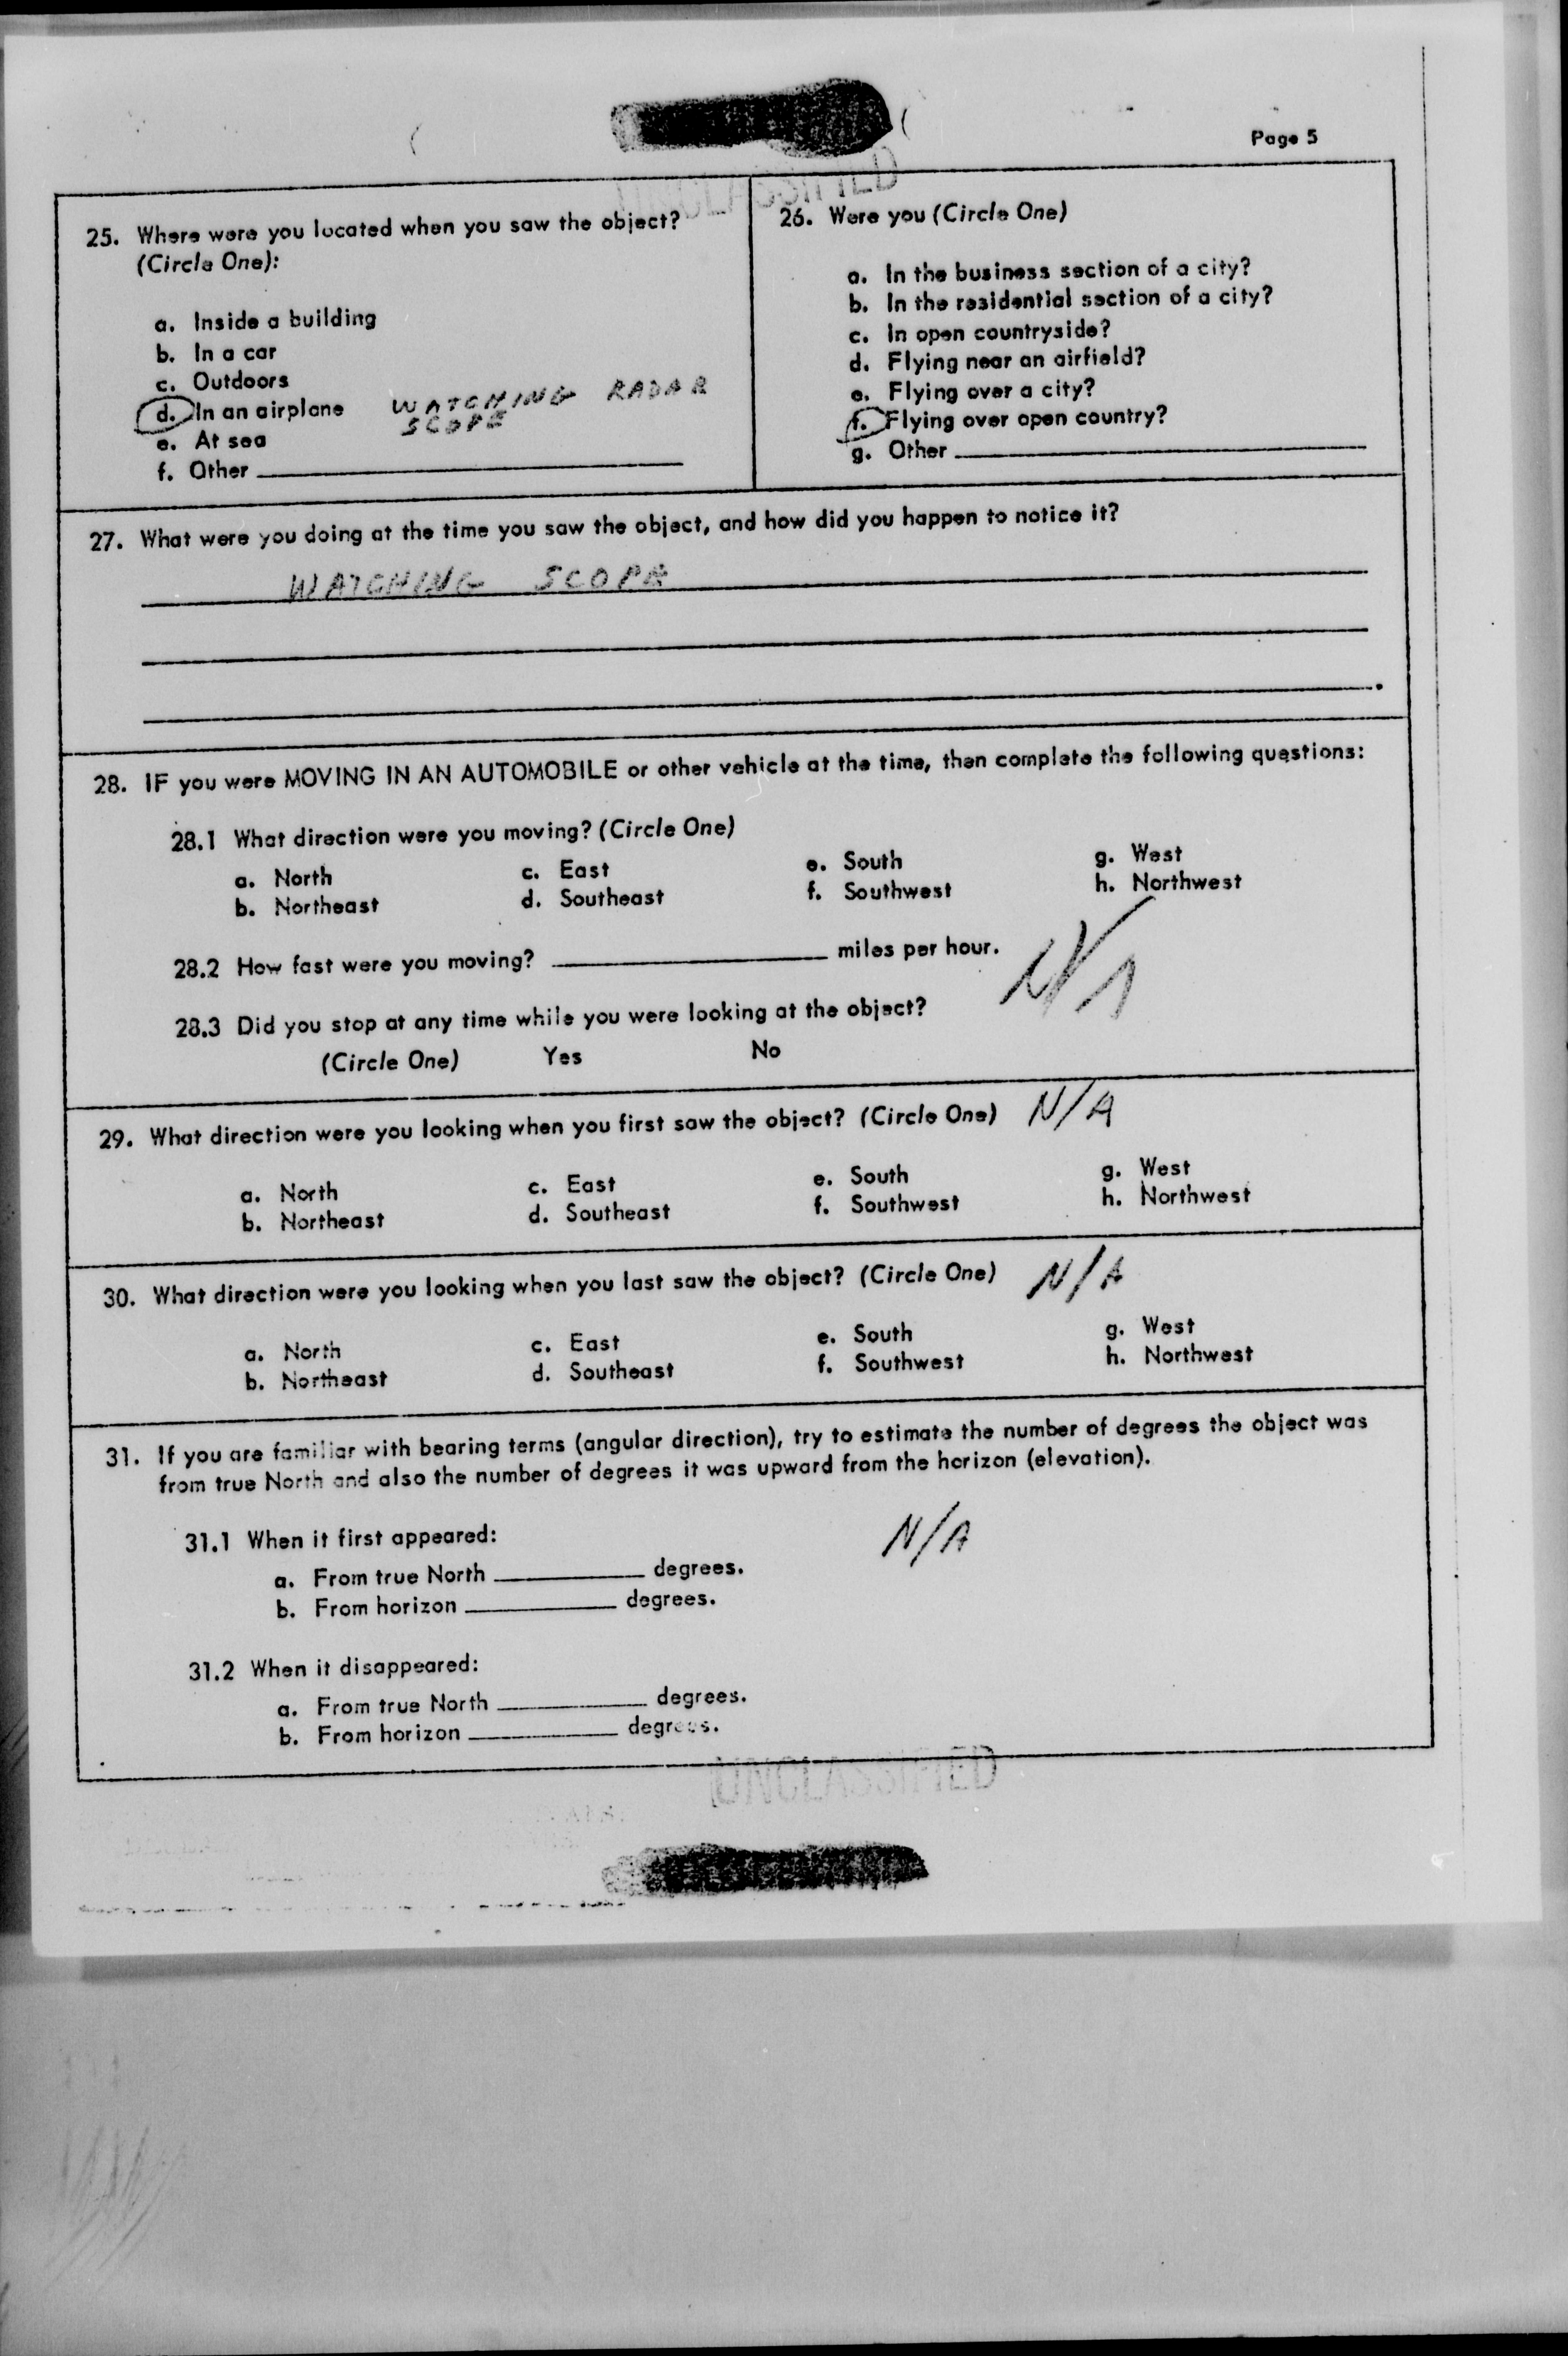 Page 5
UNCLASSIFIED
25. Where were you located when you saw the object?
(Circle One):
a. Inside a building
b. In a car
c. Outdoors
d. In an airplane WATCHING RADAR
SCOPE
e. At sea
f. Other
26. Were you (Circle One)
a. In the business section of a city?
b. In the residential section of a city?
c. In open countryside?
d. Flying near an airfield?
e. Flying over a city?
f. Flying over open country?
g. Other
27. What were you doing at the time you saw the object, and how did you happen to notice it?
WATCHING SCOPE
28. IF you were MOVING IN AN AUTOMOBILE or other vehicle at the time, then complete the following questions:
28.1 What direction were you moving? (Circle One)
a. North c. East e. South g. West
b. Northeast d. Southeast f. Southwest h. Northwest
28.2 How fast were you moving? miles per hour. N/A
28.3 Did you stop at any time while you were looking at the object?
(Circle One) Yes No
29. What direction were you looking when you first saw the object? (Circle One) N/A
a. North c. East e. South g. West
b. Northeast d. Southeast f. Southwest h. Northwest
30. What direction were you looking when you last saw the object? (Circle One) N/A
a. North c. East e. South g. West
b. Northeast d. Southeast f. Southwest h. Northwest
31. If you are familiar with bearing terms (angular direction), try to estimate the number of degrees the object was
from true North and also the number of degrees it was upward from the horizon (elevation).
N/A
31.1 When it first appeared:
a. From true North degrees.
b. From horizon degrees.
31.2 When it disappeared:
a. From true North degrees.
b. From horizon degrees.
UNCLASSIFIED